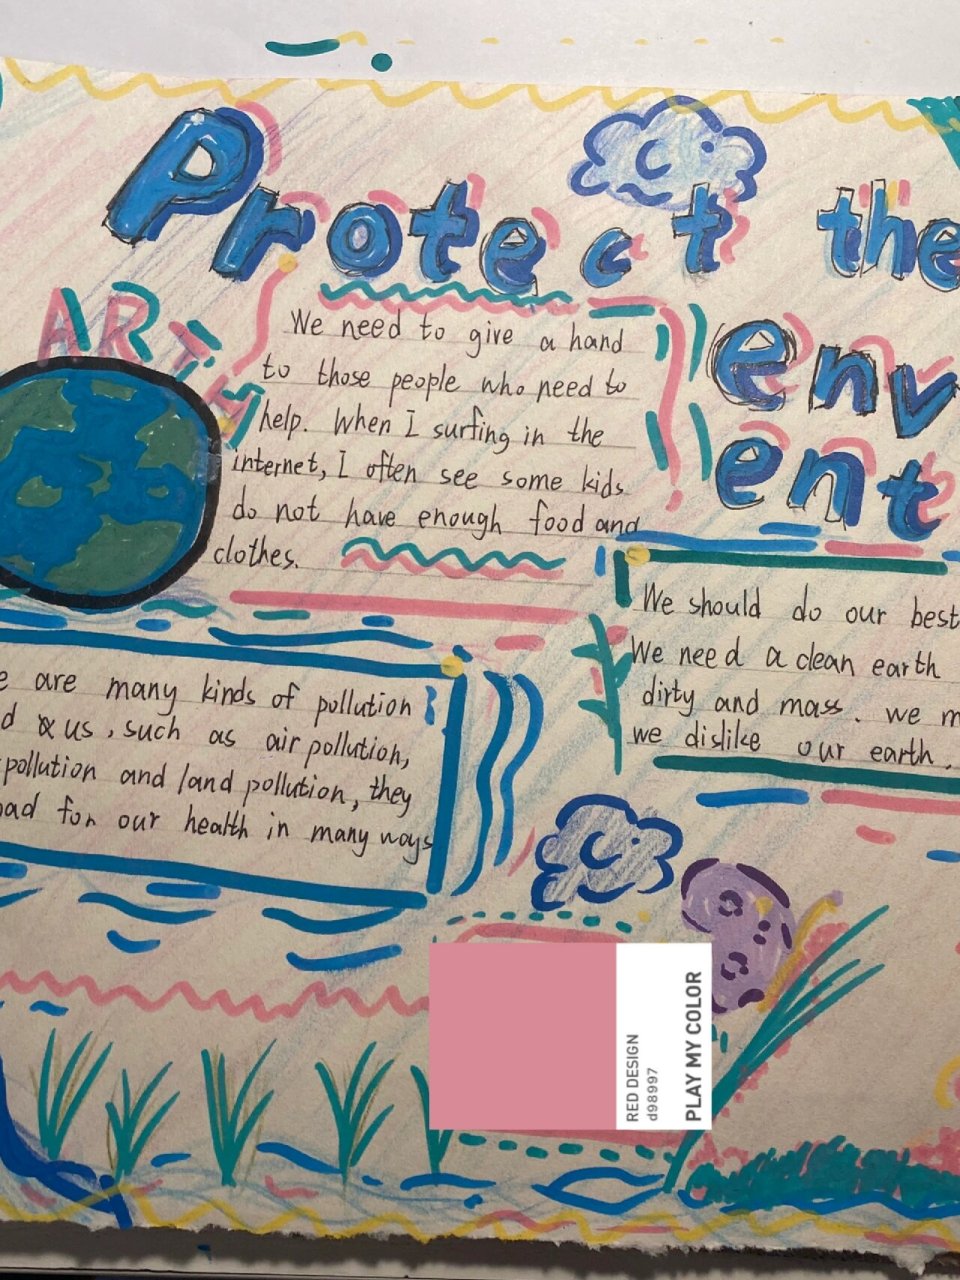 Protect the
env
ent
ARTH
We need to give a hand
to those people who need to
help. When I surfing in the
internet, I often see some kids
do not have enough food and
clothes.
We should do our best
We need a clean earth
dirty and mass. we m
we dislike our earth.
e are many kinds of pollution
d & us, such as air pollution,
pollution and land pollution, they
bad for our health in many ways
RED DESIGN
d98997
PLAY MY COLOR